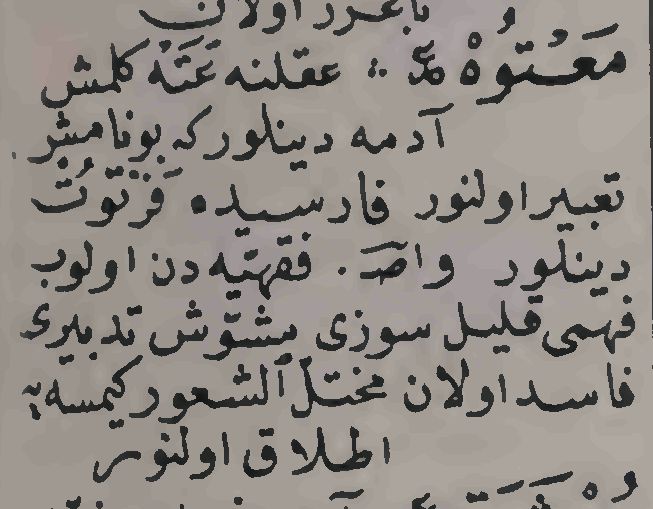 معتوه ع عقلنه عته كلمش
آدمه دينلور كه بونامش
تعبير اولنور فارسيده فرتوت
دينلور واص فقهيه دن اولوب
فهمى قليل سوزى مشوّش تدبيرى
فاسد اولان مختل الشعور كيمسه يه
اطلاق اولنور